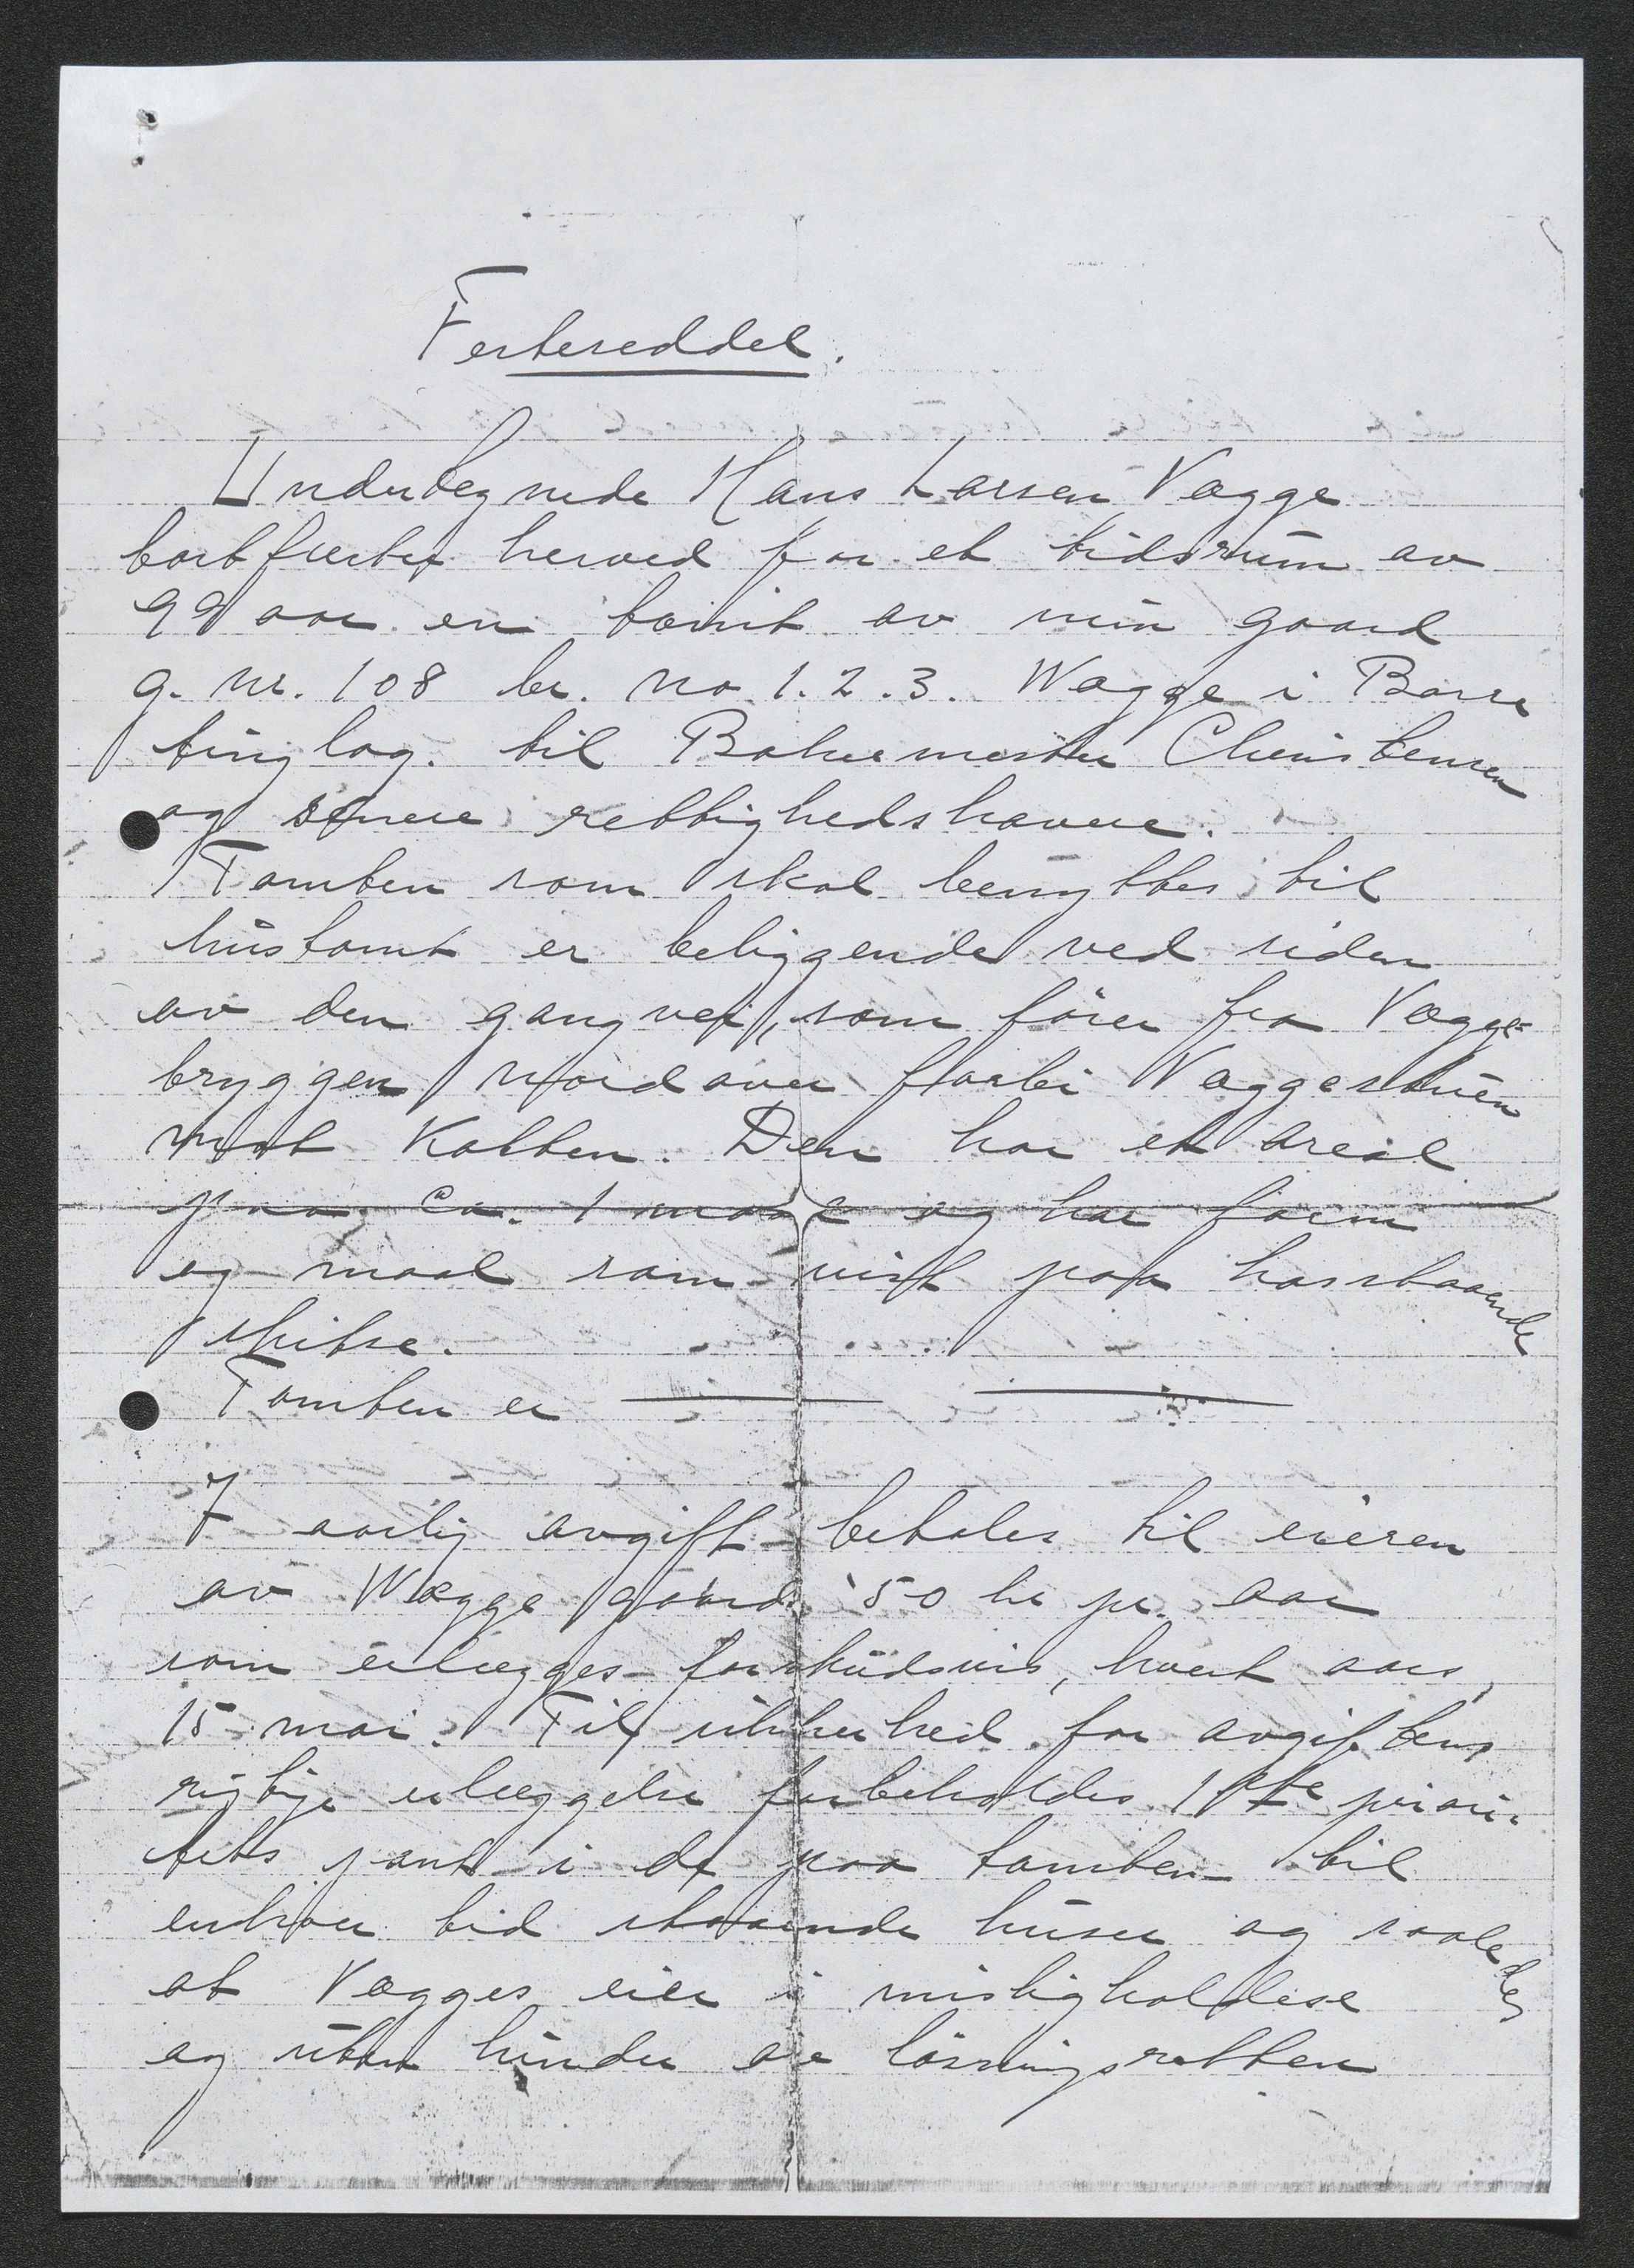 Festeseddel.
Undertegnede Hans Larsen Vagge
bortfæster herved for et tidsrum av
99 aar en tomt av min gaard
g. nr. 108 br. no 1. 2. 3. Wagge i Borre
tinglag. til Banemester Christensen
og senere rettighedshavere.
Tomten som skal benyttes til
hustomt er beliggende ved siden
av den gangvei, som förer fra Vagge-
bryggen nordover forbi Vaggestuen
mot Kolben. Den har et areal
paa ca. 1 maal og har form
og maal som vist paa hosstaaende
skitse.
Tomten er
I aarlig avgift betales til eieren
av Wagge gaard 50 kr pr. aar
som erlægges forskudsvis, hvert aars
15 mai. Til sikkerhed for avgiftens
rigtige erlæggelse forbeholdes 1ste priori-
tets pant i de paa tomten til
enhver tid staaende huser og saaledes
at Vagges eier i misligholdese
og uten hinder av lösningsretten